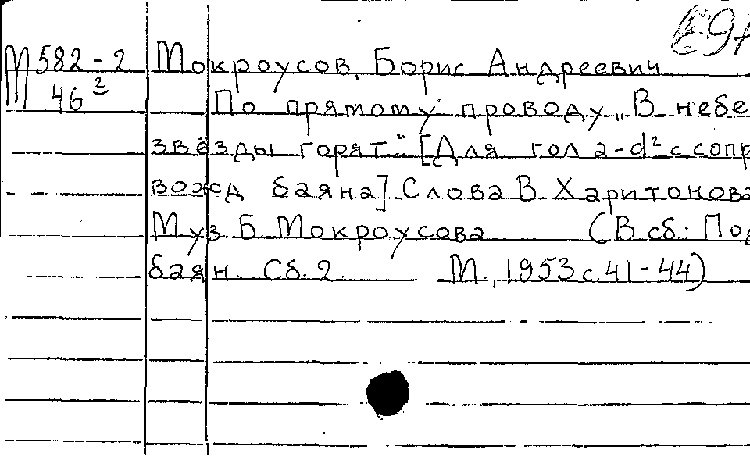 М 582-2 Мокроусов, Борис Андреевич
46 2 По прямому проводу „В небе
звёзды горят" [Для гол a-d² с сопр
вожд баяна] Слова В Харитонова
Муз Б Мокроусова (В сб: Под
баян. Сб. 2. М., 1953 с. 41-44)